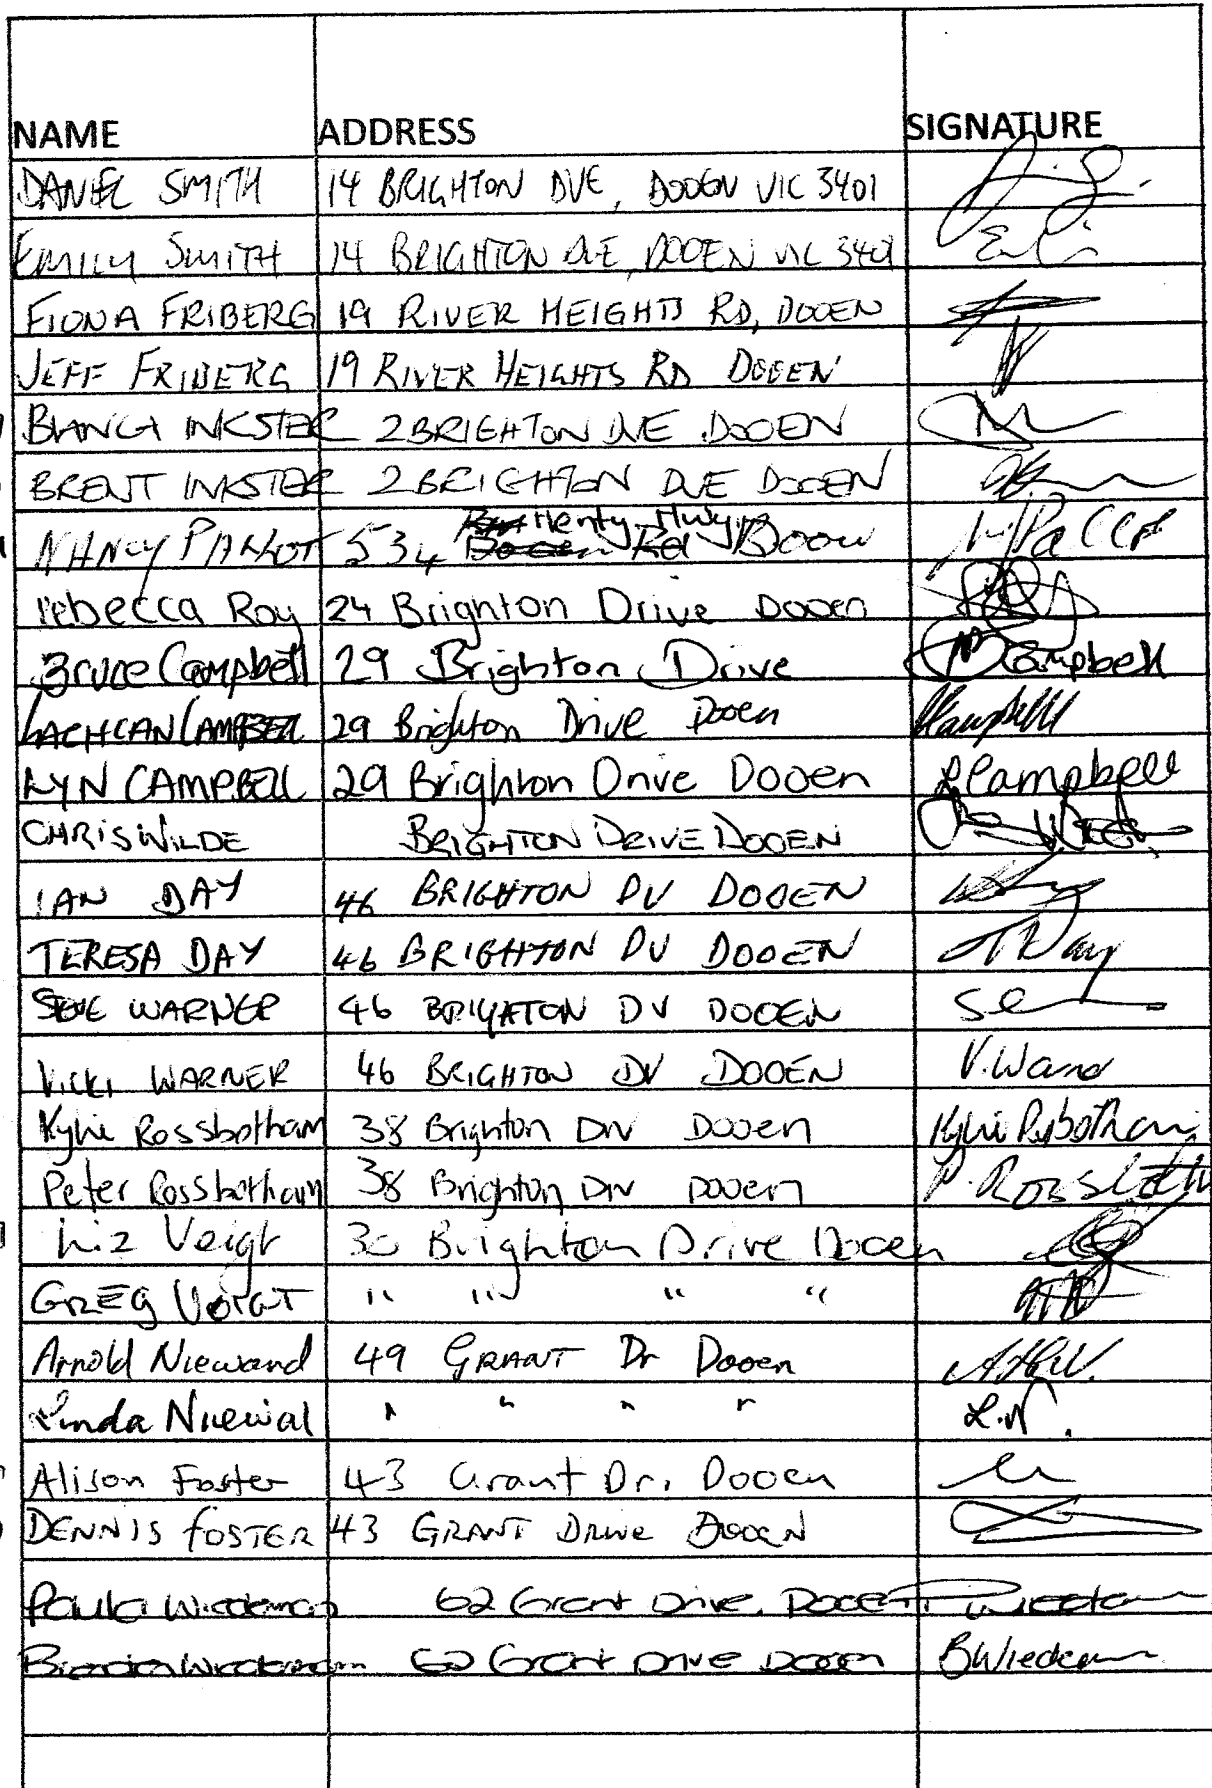 NAME ADDRESS SIGNATURE
DANIEL SMITH 14 BRIGHTON DVE, DOOEN VIC 3401
EMILY SMITH 14 BRIGHTON DVE, DOOEN VIC 3401
FIONA FRIBERG 19 RIVER HEIGHTS RD, DOOEN
JEFF FRIBERG 19 RIVER HEIGHTS RD DOOEN
INKSTER 2 BRIGHTON DVE DOOEN
BRENT INKSTER 2 BRIGHTON DVE DOOEN
NANCY 534 Henty Hwy
rebecca Roy 24 Brighton Drive Dooen
Bruce Campbell 29 Brighton Drive Campbell
LACHLAN CAMPBELL 29 Brighton Drive Dooen Campbell
LYN CAMPBELL 29 Brighton Drive Dooen L Campbell
CHRIS WILDE BRIGHTON DRIVE DOOEN
IAN DAY 46 BRIGHTON DV DOOEN
TERESA DAY 46 BRIGHTON DV DOOEN T Day
WARNER 46 BRIGHTON DV DOOEN
VICKI WARNER 46 BRIGHTON DV DOOEN V.
Kylie Rossbotham 38 Brighton Drv Dooen Kylie
Peter Rossbotham 38 Brighton Drv Dooen P.
Liz Veigt 30 Brighton Drive Dooen
GREG VOIGT " " " "
Arnold Niewand 49 GRANT Dr Dooen
Linda " " " " L.N.
Alison Foster 43 Grant Dr, Dooen
DENNIS FOSTER 43 GRANT Drive DOOEN
Paula 62 Grant Drive, Dooen
62 Grant Drive Dooen